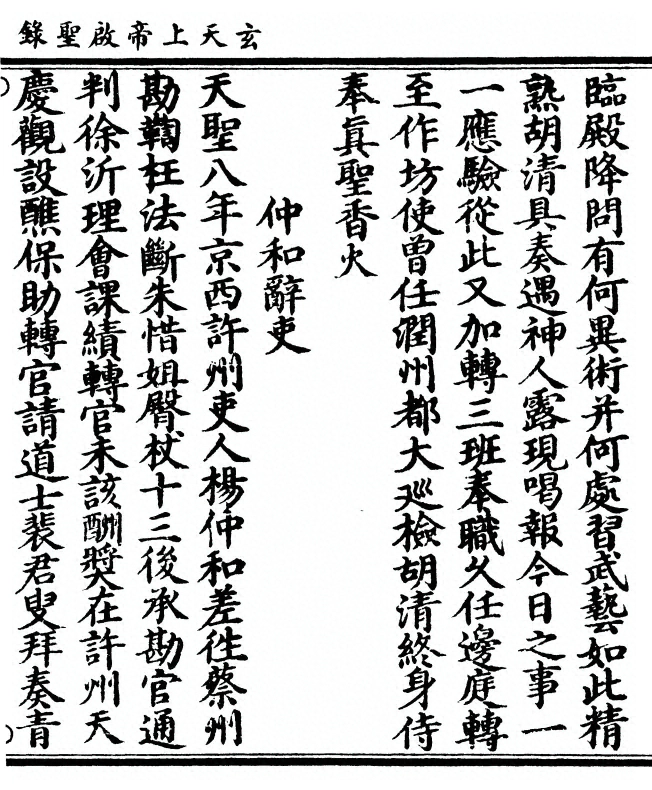 玄天上帝啟聖錄
臨殿降問有何異術并何處習武藝如此精
熟胡清具奏遇神人露現喝報今日之事一
一應驗從此又加轉三班奉職久任邊庭轉
至作坊使曾任潤州都大巡檢胡清終身侍
奉真聖香火
仲和辭吏
天聖八年京西許州吏人楊仲和差往蔡州
勘鞫枉法斷朱惜姐臀杖十三後承勘官通
判徐沂理會課績轉官未該酬獎在許州天
慶觀設醮保助轉官請道士裴君叟拜奏青